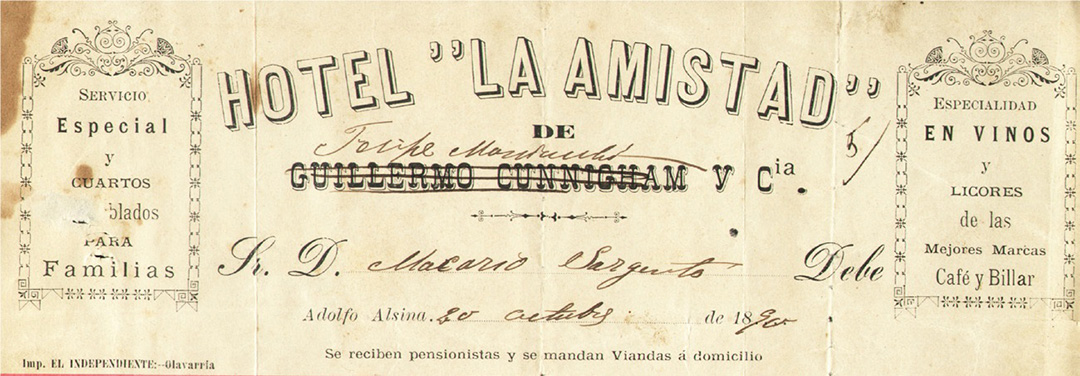 SERVICIO
Especial
y
CUARTOS
blados
PARA
Familias
HOTEL "LA AMISTAD"
DE
Felipe
GUILLERMO CUNNIGHAM Y Cia.
5/
Sr. D. Macario Sargento Debe
Adolfo Alsina. 20 octubre de 1890
Se reciben pensionistas y se mandan Viandas á domicilio
ESPECIALIDAD
EN VINOS
y
LICORES
de las
Mejores Marcas
Café y Billar
Imp. EL INDEPENDIENTE:--Olavarría